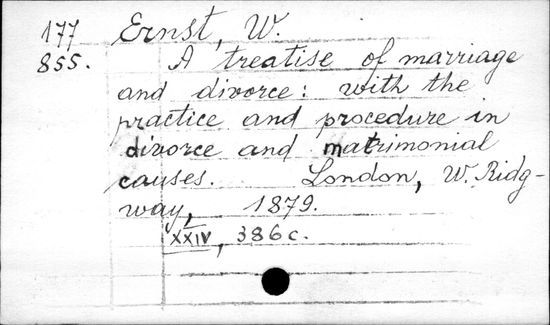 177 Ernst, W.
855. A treatise of marriage
and divorce: with the
practice and procedure in
divorce and matrimonial
causes. London, W. Ridg-
way, 1879.
XXIV, 386 c.